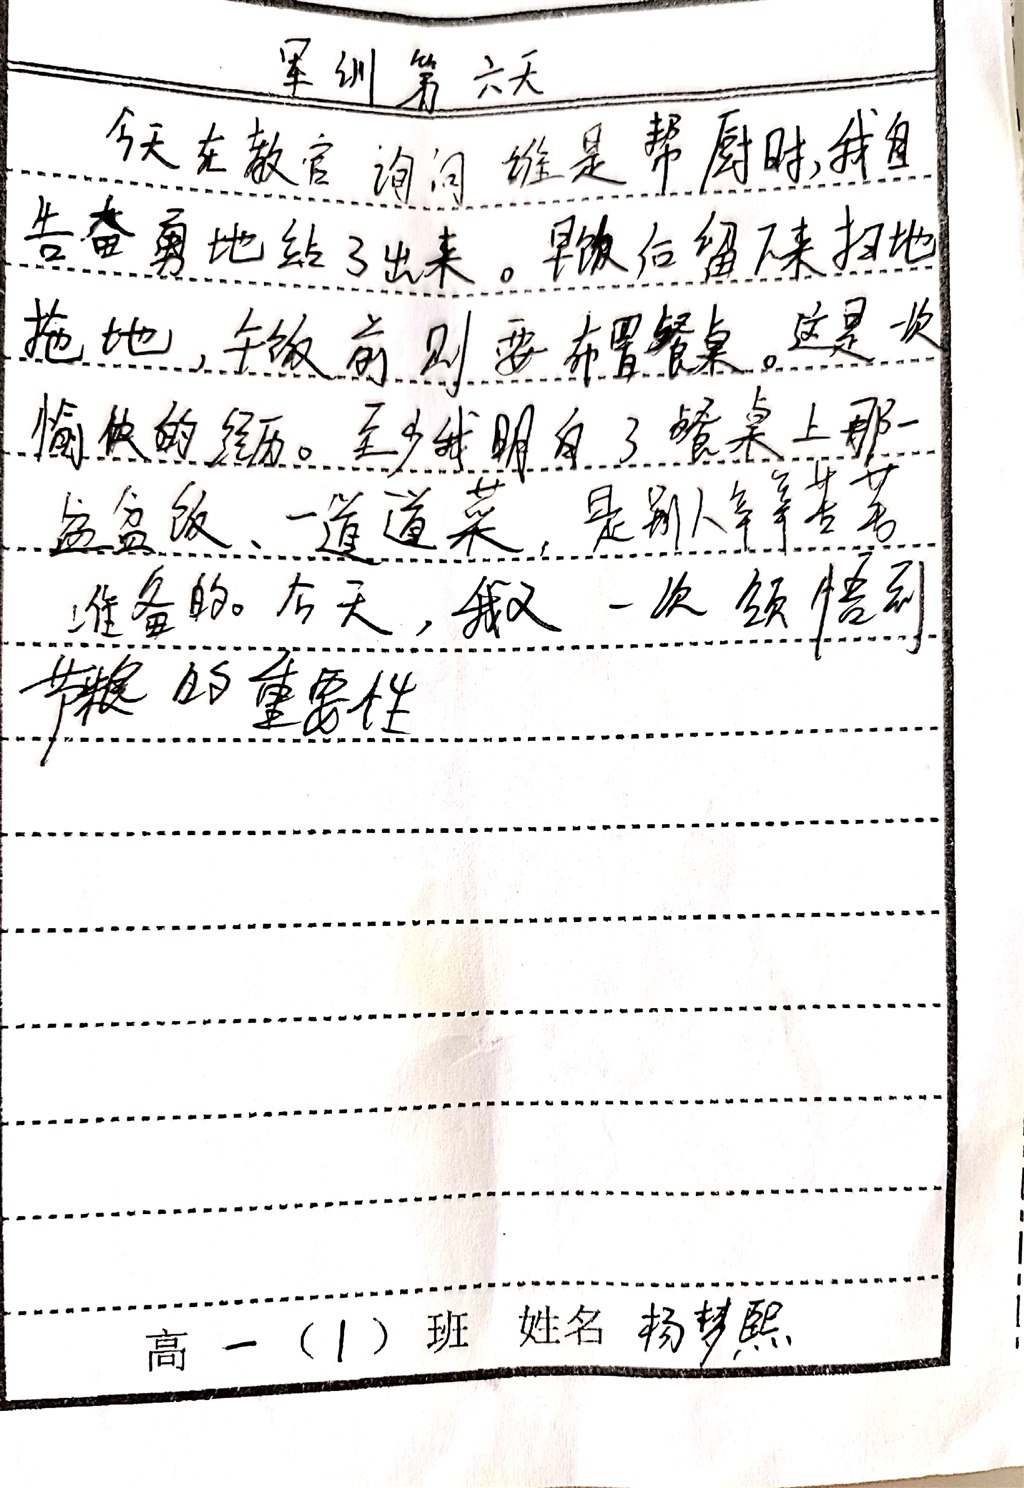 军训第六天
今天在教官询问谁是帮厨时,我自
告奋勇地站了出来。早饭后留下来扫地
拖地,午饭前则要布置餐桌。这是一次
愉快的经历。至少我明白了餐桌上那一
盆盆饭、一道道菜,是别人辛辛苦苦
准备的。今天,我又一次领悟到
节粮的重要性
高一(1)班 姓名 杨梦熙